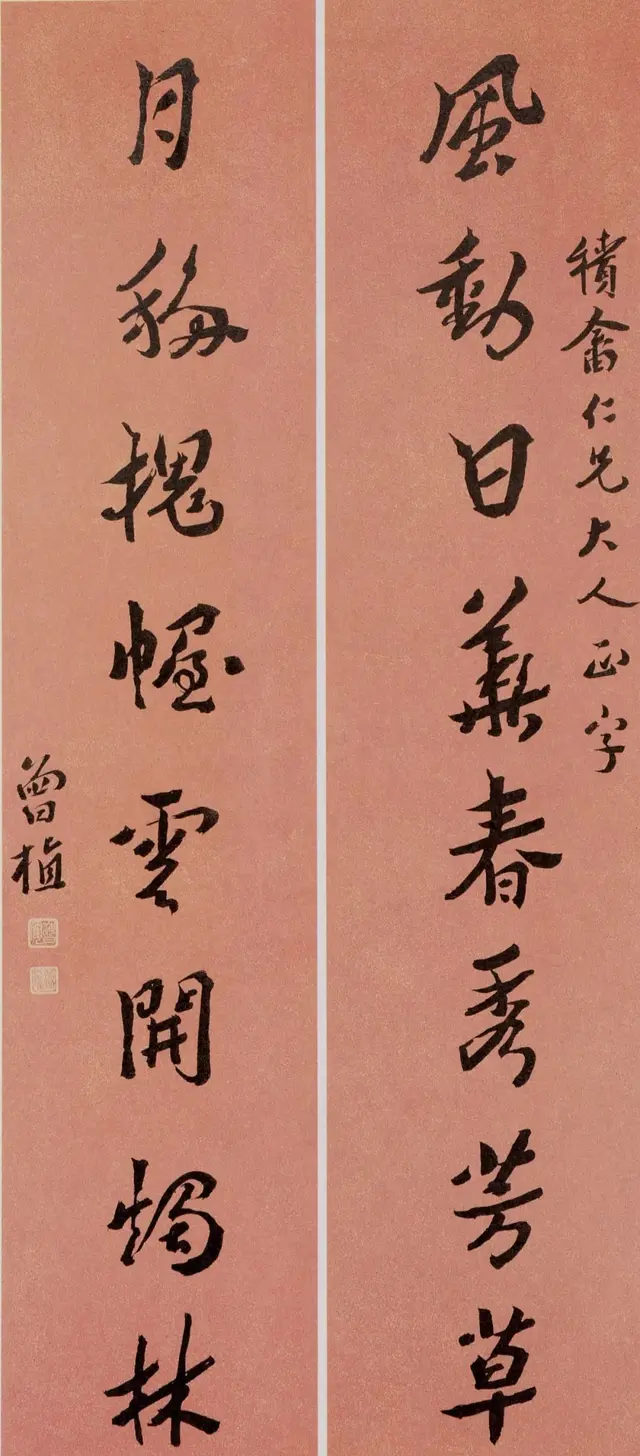 積畬仁兄大人正字
風動日華春秀芳草
月移槐幄雲開燭林
曾植